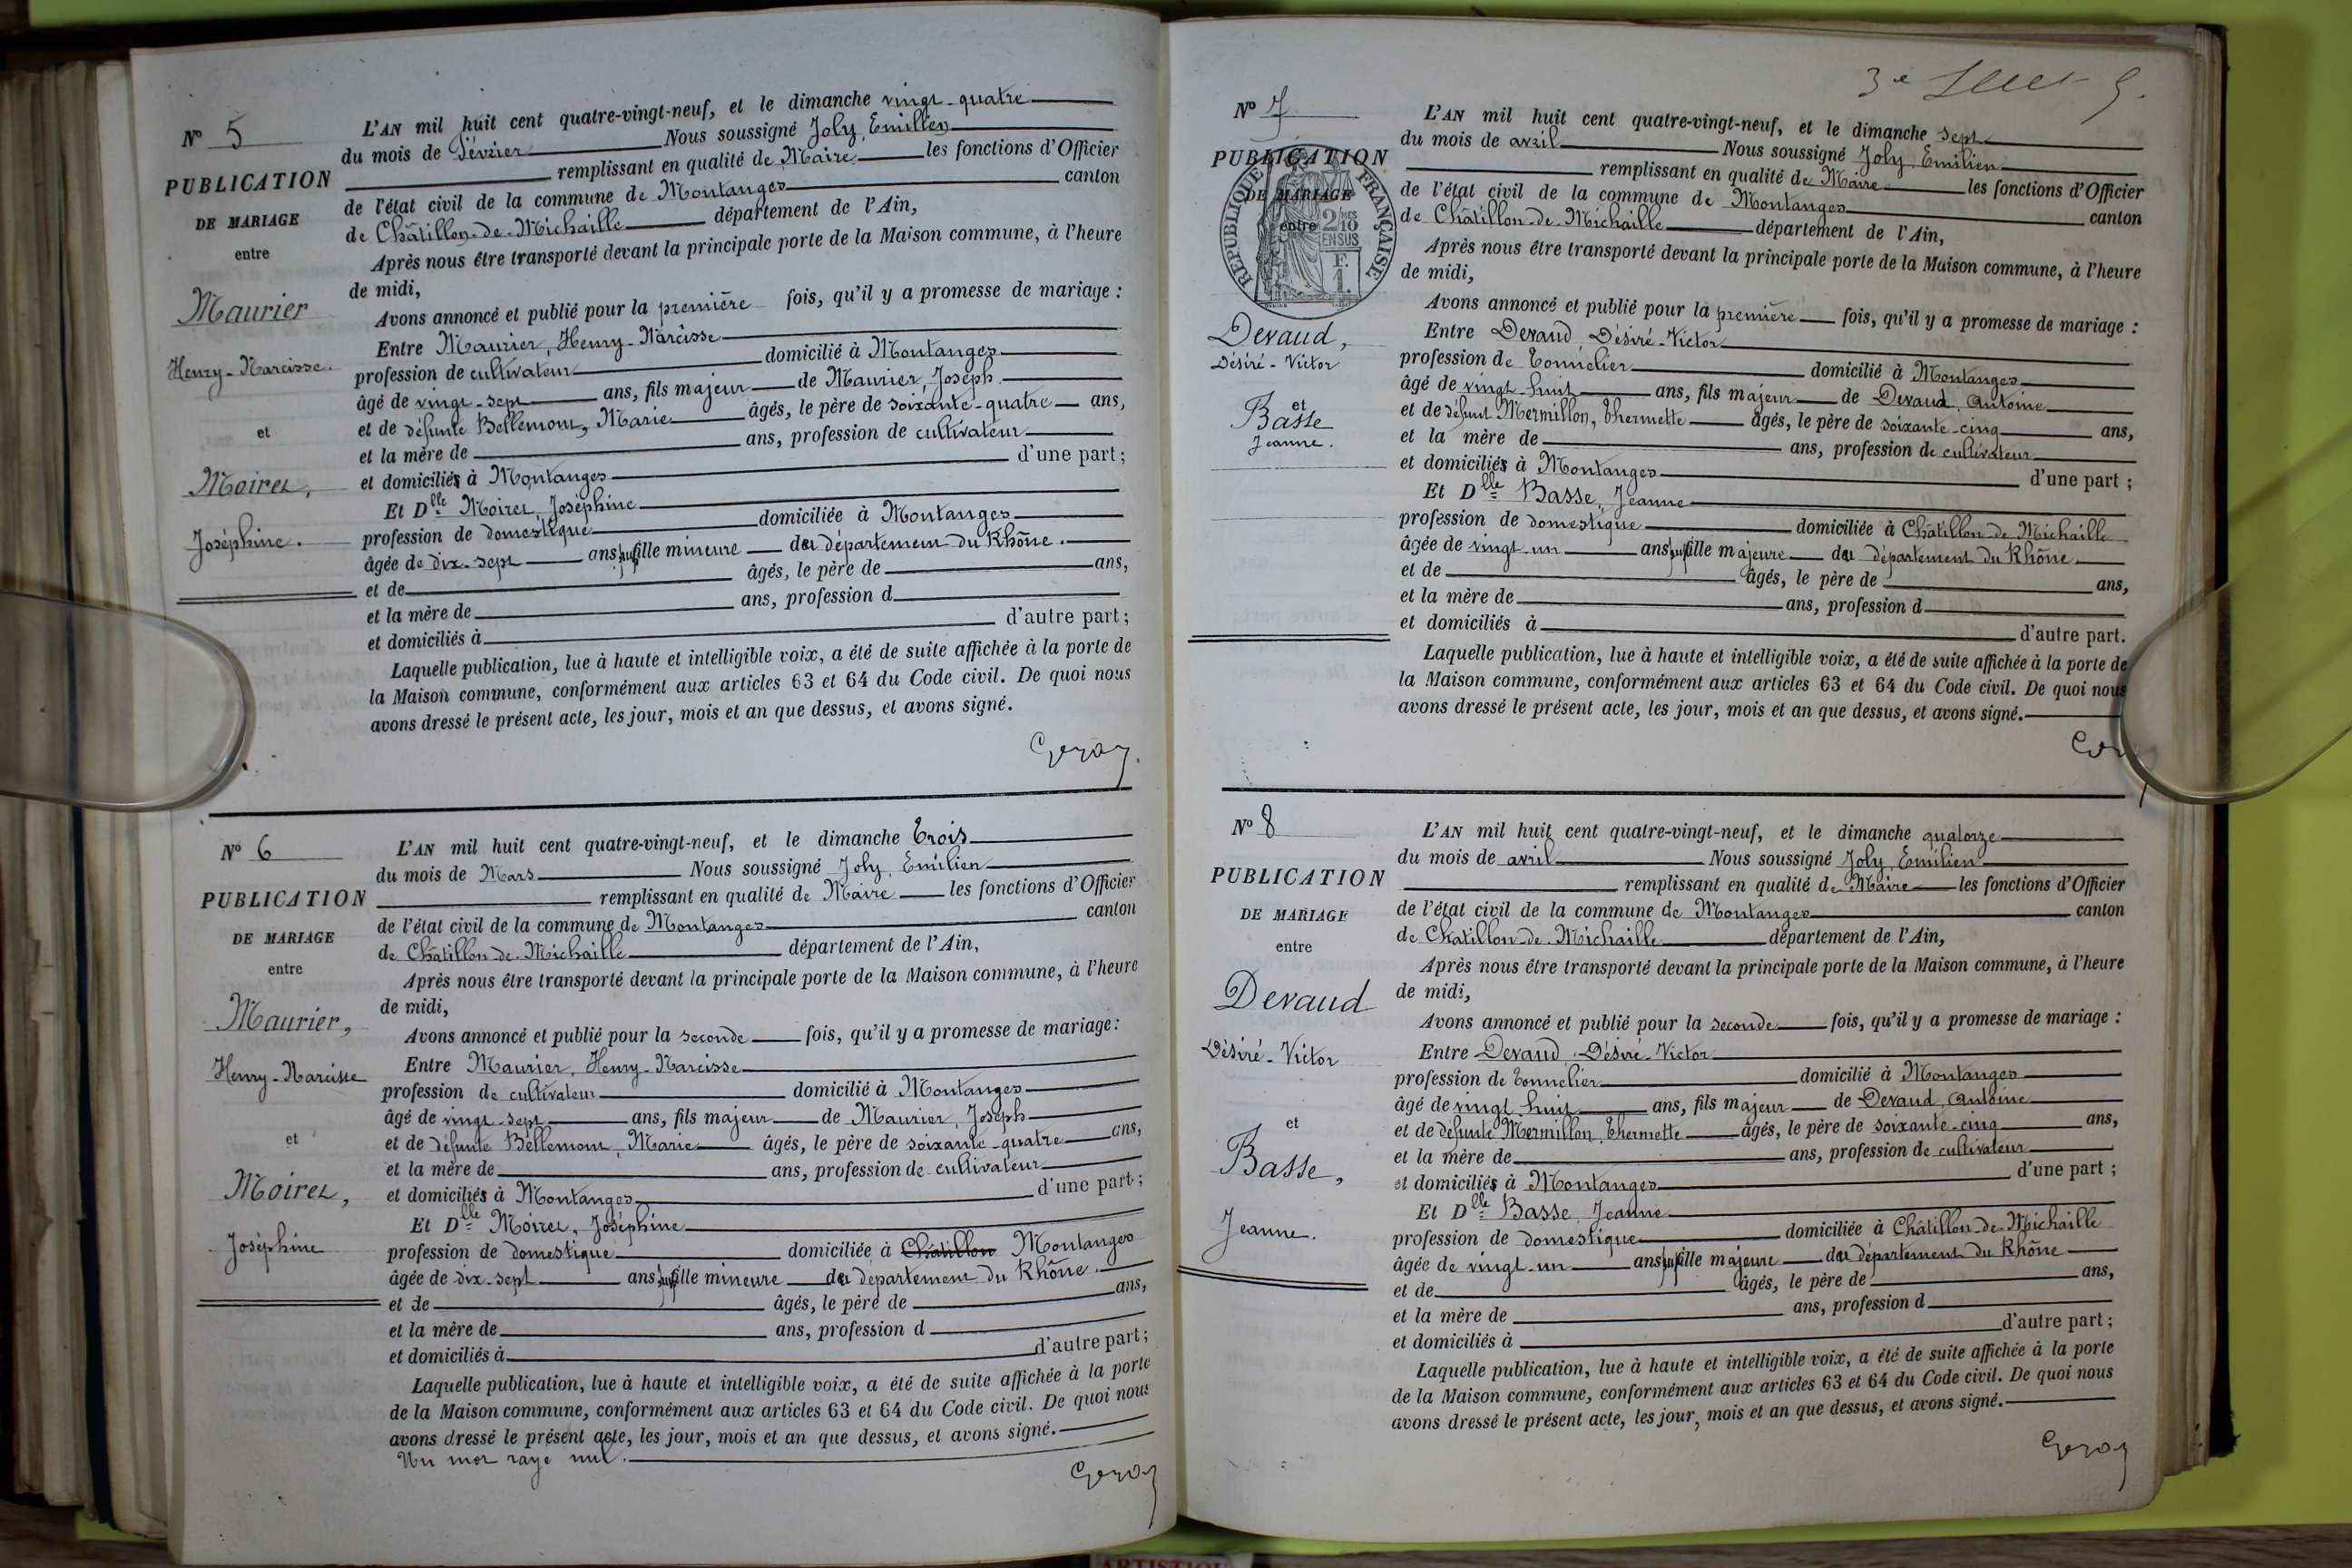 N° 5
PUBLICATION
DE MARIAGE
entre
Maurier
Henry-Narcisse.
et
Moiret,
Joséphine.
L'AN mil huit cent quatre-vingt-neuf, et le dimanche vingt-quatre
du mois de Février Nous soussigné Joly, Emilien
remplissant en qualité de Maire les fonctions d'Officier
de l'état civil de la commune de Montanges canton
de Châtillon-de-Michaille département de l'Ain,
Après nous être transporté devant la principale porte de la Maison commune, à l'heure
de midi,
Avons annoncé et publié pour la première fois, qu'il y a promesse de mariage :
Entre Maurier, Henry-Narcisse
profession de cultivateur domicilié à Montanges
âgé de vingt-sept ans, fils majeur de Maurier, Joseph
et de défunte Bellemont, Marie âgés, le père de soixante-quatre ans,
et la mère de ans, profession de cultivateur
et domiciliés à Montanges d'une part ;
Et Dlle Moiret, Joséphine
profession de domestique domiciliée à Montanges
âgée de dix-sept ans, fille mineure du département du Rhône.
et de âgés, le père de ans,
et la mère de ans, profession d
et domiciliés à d'autre part ;
Laquelle publication, lue à haute et intelligible voix, a été de suite affichée à la porte de
la Maison commune, conformément aux articles 63 et 64 du Code civil. De quoi nous
avons dressé le présent acte, les jour, mois et an que dessus, et avons signé.
N° 6
PUBLICATION
DE MARIAGE
entre
Maurier,
Henry-Narcisse
et
Moiret,
Joséphine
L'AN mil huit cent quatre-vingt-neuf, et le dimanche trois
du mois de Mars Nous soussigné Joly, Emilien
remplissant en qualité de Maire les fonctions d'Officier
de l'état civil de la commune de Montanges canton
de Châtillon-de-Michaille département de l'Ain,
Après nous être transporté devant la principale porte de la Maison commune, à l'heure
de midi,
Avons annoncé et publié pour la seconde fois, qu'il y a promesse de mariage :
Entre Maurier, Henry-Narcisse
profession de cultivateur domicilié à Montanges
âgé de vingt-sept ans, fils majeur de Maurier, Joseph
et de défunte Bellemont, Marie âgés, le père de soixante-quatre ans,
et la mère de ans, profession de cultivateur
et domiciliés à Montanges d'une part ;
Et Dlle Moiret, Joséphine
profession de domestique domiciliée à Châtillon Montanges
âgée de dix-sept ans, fille mineure du département du Rhône.
et de âgés, le père de ans,
et la mère de ans, profession d
et domiciliés à d'autre part ;
Laquelle publication, lue à haute et intelligible voix, a été de suite affichée à la porte
de la Maison commune, conformément aux articles 63 et 64 du Code civil. De quoi nous
avons dressé le présent acte, les jour, mois et an que dessus, et avons signé.
Un mot rayé nul.
3e
N° 7
PUBLICATION
DE MARIAGE
entre
RÉPUBLIQUE FRANÇAISE
2/10MES
EN SUS
F.
1.
Devaud,
Désiré-Victor
et
Basse
Jeanne.
L'AN mil huit cent quatre-vingt-neuf, et le dimanche sept
du mois de avril Nous soussigné Joly, Emilien
remplissant en qualité de Maire les fonctions d'Officier
de l'état civil de la commune de Montanges canton
de Châtillon-de-Michaille département de l'Ain,
Après nous être transporté devant la principale porte de la Maison commune, à l'heure
de midi,
Avons annoncé et publié pour la première fois, qu'il y a promesse de mariage :
Entre Devaud, Désiré-Victor
profession de tonnelier domicilié à Montanges
âgé de vingt-huit ans, fils majeur de Devaud, Antoine
et de défunt Mermillon, Thermette âgés, le père de soixante-cinq ans,
et la mère de ans, profession de cultivateur
et domiciliés à Montanges d'une part ;
Et Dlle Basse, Jeanne
profession de domestique domiciliée à Châtillon-de-Michaille
âgée de vingt-un ans, fille majeure du département du Rhône
et de âgés, le père de ans,
et la mère de ans, profession d
et domiciliés à d'autre part.
Laquelle publication, lue à haute et intelligible voix, a été de suite affichée à la porte de
la Maison commune, conformément aux articles 63 et 64 du Code civil. De quoi nous
avons dressé le présent acte, les jour, mois et an que dessus, et avons signé.
N° 8
PUBLICATION
DE MARIAGE
entre
Devaud
Désiré-Victor
et
Basse,
Jeanne.
L'AN mil huit cent quatre-vingt-neuf, et le dimanche quatorze
du mois de avril Nous soussigné Joly, Emilien
remplissant en qualité de Maire les fonctions d'Officier
de l'état civil de la commune de Montanges canton
de Châtillon-de-Michaille département de l'Ain,
Après nous être transporté devant la principale porte de la Maison commune, à l'heure
de midi,
Avons annoncé et publié pour la seconde fois, qu'il y a promesse de mariage :
Entre Devaud, Désiré-Victor
profession de tonnelier domicilié à Montanges
âgé de vingt huit ans, fils majeur de Devaud, Antoine
et de défunte Mermillon, Thermette âgés, le père de soixante-cinq ans,
et la mère de ans, profession de cultivateur
et domiciliés à Montanges d'une part ;
Et Dlle Basse, Jeanne
profession de domestique domiciliée à Châtillon-de-Michaille
âgée de vingt-un ans, fille majeure du département du Rhône
et de âgés, le père de ans,
et la mère de ans, profession d
et domiciliés à d'autre part ;
Laquelle publication, lue à haute et intelligible voix, a été de suite affichée à la porte
de la Maison commune, conformément aux articles 63 et 64 du Code civil. De quoi nous
avons dressé le présent acte, les jour, mois et an que dessus, et avons signé.